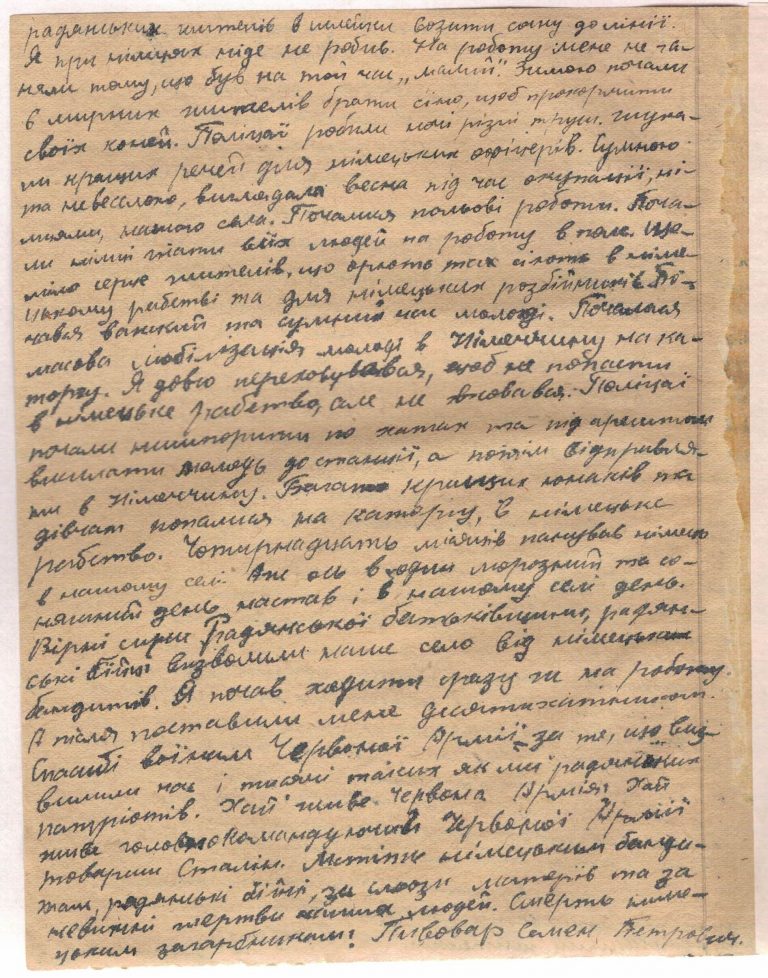 радянських жителів в шлейки возити сану до лінії.
Я при німцях ніде не робив. На роботу мене не га-
няли тому, що був на той час „малий". Зимою почали
в мирних жителів брати сіно, щоб прокормити
своїх коней. Поліцаї робили ночі різні труси. шука-
ли кращих речей для німецьких офіцерів. Сумною
та невеселою, виглядала весна під час окупації, ні-
мцями, нашого села. Почалися польові роботи. Поча-
ли німці гнати всіх людей на роботу в поле. Ще-
міло серце жителів, що орють та сіють в німе-
цькому рабстві та для німецьких розбійників. По-
чався важкий та сумний час молоді. Почалася
масова мобілізація молоді в Німеччину на ка-
торгу. Я довго переховувався, щоб не попасти
в німецьке рабство, але не вховався. Поліцаї
почали нишпорити по хатах та під арештом
висилати молодь до станції, а потім відправля-
ти в Німеччину. Багато кращих юнаків та
дівчат попалися на каторгу, в німецьке
рабство. Чотирнадцать місяців панував німець
в нашому селі. Аж ось в один морозний та со-
няшний день настав і в нашому селі день.
Вірні сини Радянської батьківщини, радян-
ські бійці визволили наше село від німецьких
бандитів. Я почав ходити сразу ж на роботу.
А після поставили мене десятихатником.
Спасибі воїнам Червоної Армії за те, що виз-
волили нас і тисячі таких як ми радянських
патріотів. Хай живе Червона Армія! Хай
живе головнокомандуючий Червоної Армії
товариш Сталін. Мстіть німецьким банди-
там, радянські бійці, за сльози матерів та за
невинні жертви наших людей. Смерть німе-
цьким загарбникам! Пивовар Семен Петрович.